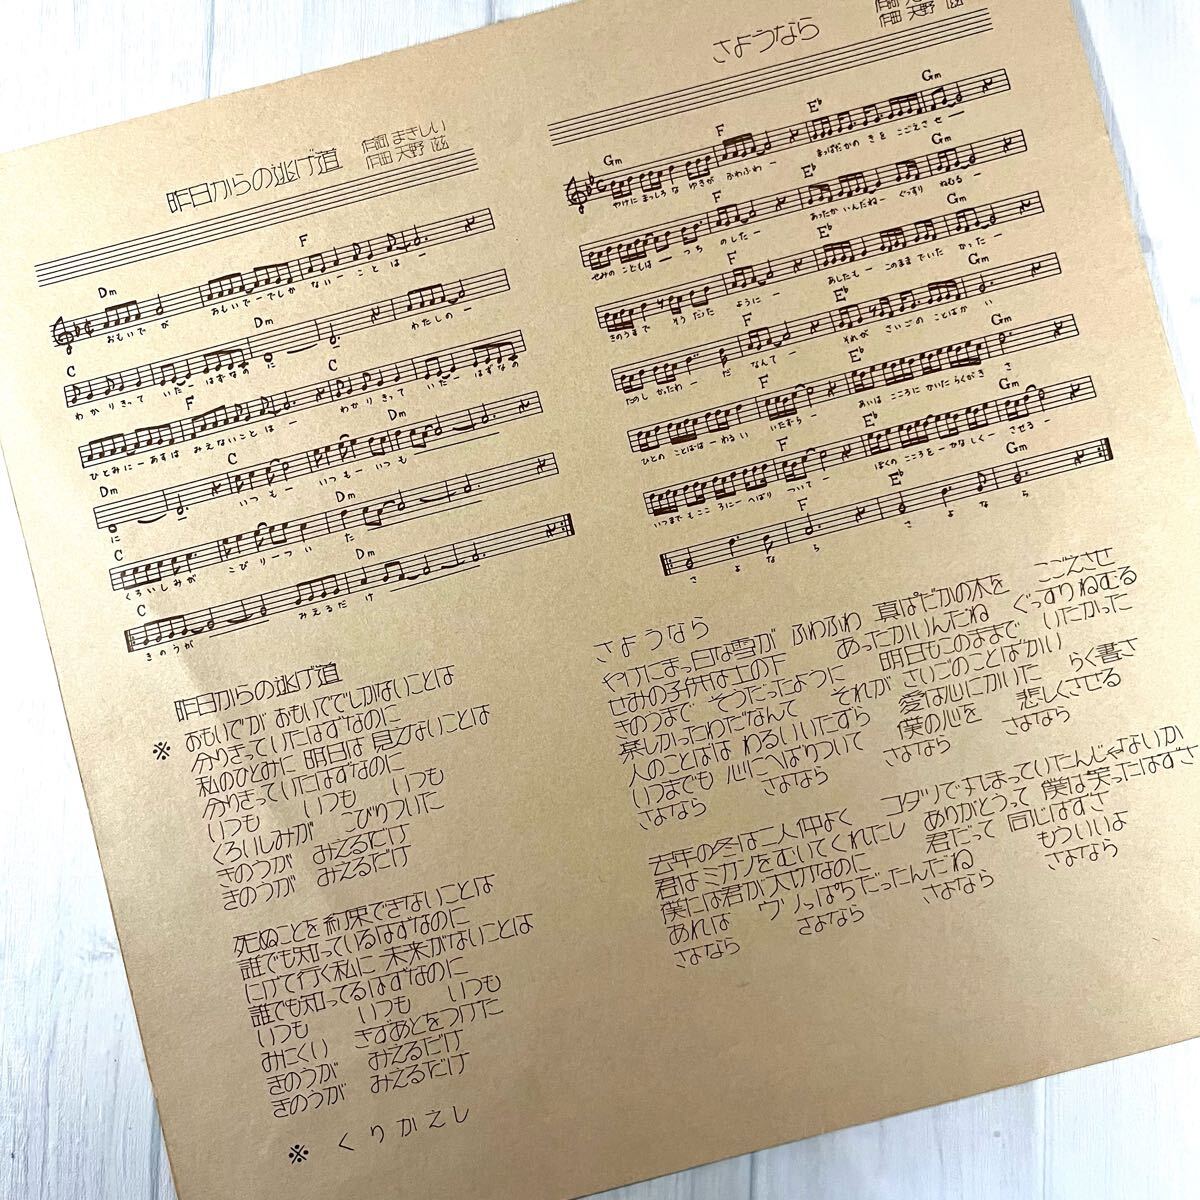 昨日からの逃げ道
作詞 まきしい
作曲 天野 滋
Dm
F
おもいでが おもいで－でしか ない－ ことは－
C
Dm
わかりきって いた－ はずなの に わたしの－
F
C
ひとみに－あすは みえないことは－ わかりきって いた－ はずなの
Dm
C
Dm
に いつも－ いつも－ いつも
C
Dm
くろいしみが こびり－つい た
C
Dm
きのうが みえるだ け
昨日からの逃げ道
おもいでが おもいででしかないことは
※ 分りきっていたはずなのに
私のひとみに 明日は見えないことは
分りきっていたはずなのに
いつも いつも いつも
くろいしみが こびりついた
きのうが みえるだけ
きのうが みえるだけ
死ぬことを約束できないことは
誰でも知っているはずなのに
にげて行く私に 未来がないことは
誰でも知ってるはずなのに
いつも いつも いつも
みにくい きずあとをつけた
きのうが みえるだけ
きのうが みえるだけ
※ くりかえし
さようなら
作曲 天野 滋
Gm
F
E♭
Gm
やけに まっしろ な ゆきが ふわふわ－ まっぱだかの きを こごえさせ－
F
E♭
Gm
せみの こどもは－ つち のした－ あったか いんだね－ ぐっすり ねむる－
F
E♭
Gm
きのうまで そうだった ように－ あしたも－ このまま でいた かった－
F
E♭
Gm
たのし かったわ－ だ なんて－ それが さいごの ことばか い
F
E♭
Gm
ひとの ことばは－わるい いたずら－ あいは こころに かいた らくがき さ
F
E♭
Gm
いつまで もここ ろに－ へばり ついて－ ぼくの こころを－かなしく－ させる－
F
E♭
Gm
さ よ な ら さ よ な ら
さようなら
やけにまっ白な雪が ふわふわ 真ぱだかの木を こごえさせ
せみの子供は土の下 あったかいんだね ぐっすりねむる
きのうまで そうだったように 明日もこのままで いたかった
楽しかったわだなんて それが さいごのことばかい
人のことばは わるいいたずら 愛は心にかいた らく書さ
いつまでも 心にへばりついて 僕の心を 悲しくさせる
さよなら さよなら さよなら さよなら
去年の冬は二人仲よく コタツで丸まっていたんじゃないか
君はミカンをむいてくれたし ありがとうって 僕は笑ったはずさ
僕には君が大切なのに 君だって 同じはずさ
あれは ウソっぱちだったんだね もういいよ
さよなら さよなら さよなら さよなら